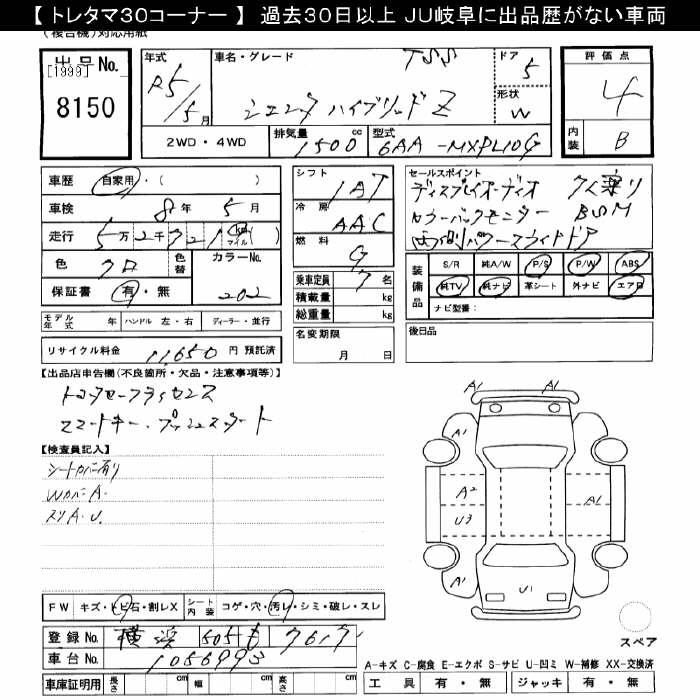 【 トレタマ30コーナー 】 過去30日以上 JU岐阜に出品歴がない車両
(複合機)対応用紙
出品No.
[1999]
8150
年式
R5/5月
車名・グレード
TSS
シエンタ ハイブリッド Z
ドア
5
形状
W
評価点
4
内装
B
2WD・4WD
排気量
1500cc
型式
6AA-MXPL10G
車歴
自家用・( )
車検
8年 5月
走行
5万2千721 km マイル( )
色
クロ
色替
カラーNo.
202
保証書
有・無
モデル年式 年 ハンドル 左・右 ディーラー・並行
リサイクル料金 11,650円 預託済
シフト
IAT
冷房
AAC
燃料
G
乗車定員 7名
積載量 kg
総重量 kg
名変期限
月 日
セールスポイント
ディスプレイオーディオ 7人乗り
カラーバックモニター BSM
両側パワースライドドア
装備品
S/R 純A/W P/S P/W ABS
純TV 純ナビ 革シート 外ナビ エアB
ナビ型番:
後日品
【出品店申告欄(不良箇所・欠品・注意事項等)】
トヨタセーフティセンス
スマートキー・プッシュスタート
【検査員記入】
シートカバー有り
Wカバー A.
スリ A・U.
A1
A1
A1
A2
U3
A1
A1
U1
スペア
FW キズ・トビ石・割レX シート内装 コゲ・穴・汚レ・シミ・破レ・スレ
登録No. 横浜 505 も
車台No. 1056993
車庫証明用 長さ cm 幅 cm 高さ cm
A-キズ C-腐食 E-エクボ S-サビ U-凹ミ W-補修 XX-交換済
工具 有・無 ジャッキ 有・無